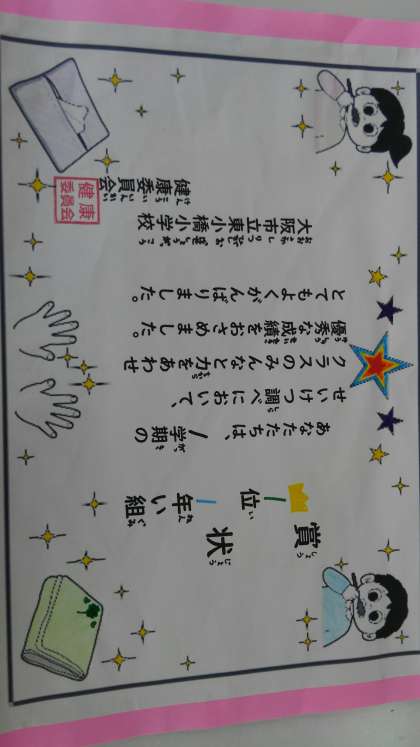 賞状
1位 1年い組
あなたたちは、1学期の
せいけつ調べにおいて、
クラスのみんなと力をあわせ
優秀な成績をおさめました。
とてもよくがんばりました。
大阪市立東小橋小学校
健康委員会
健康
委員会